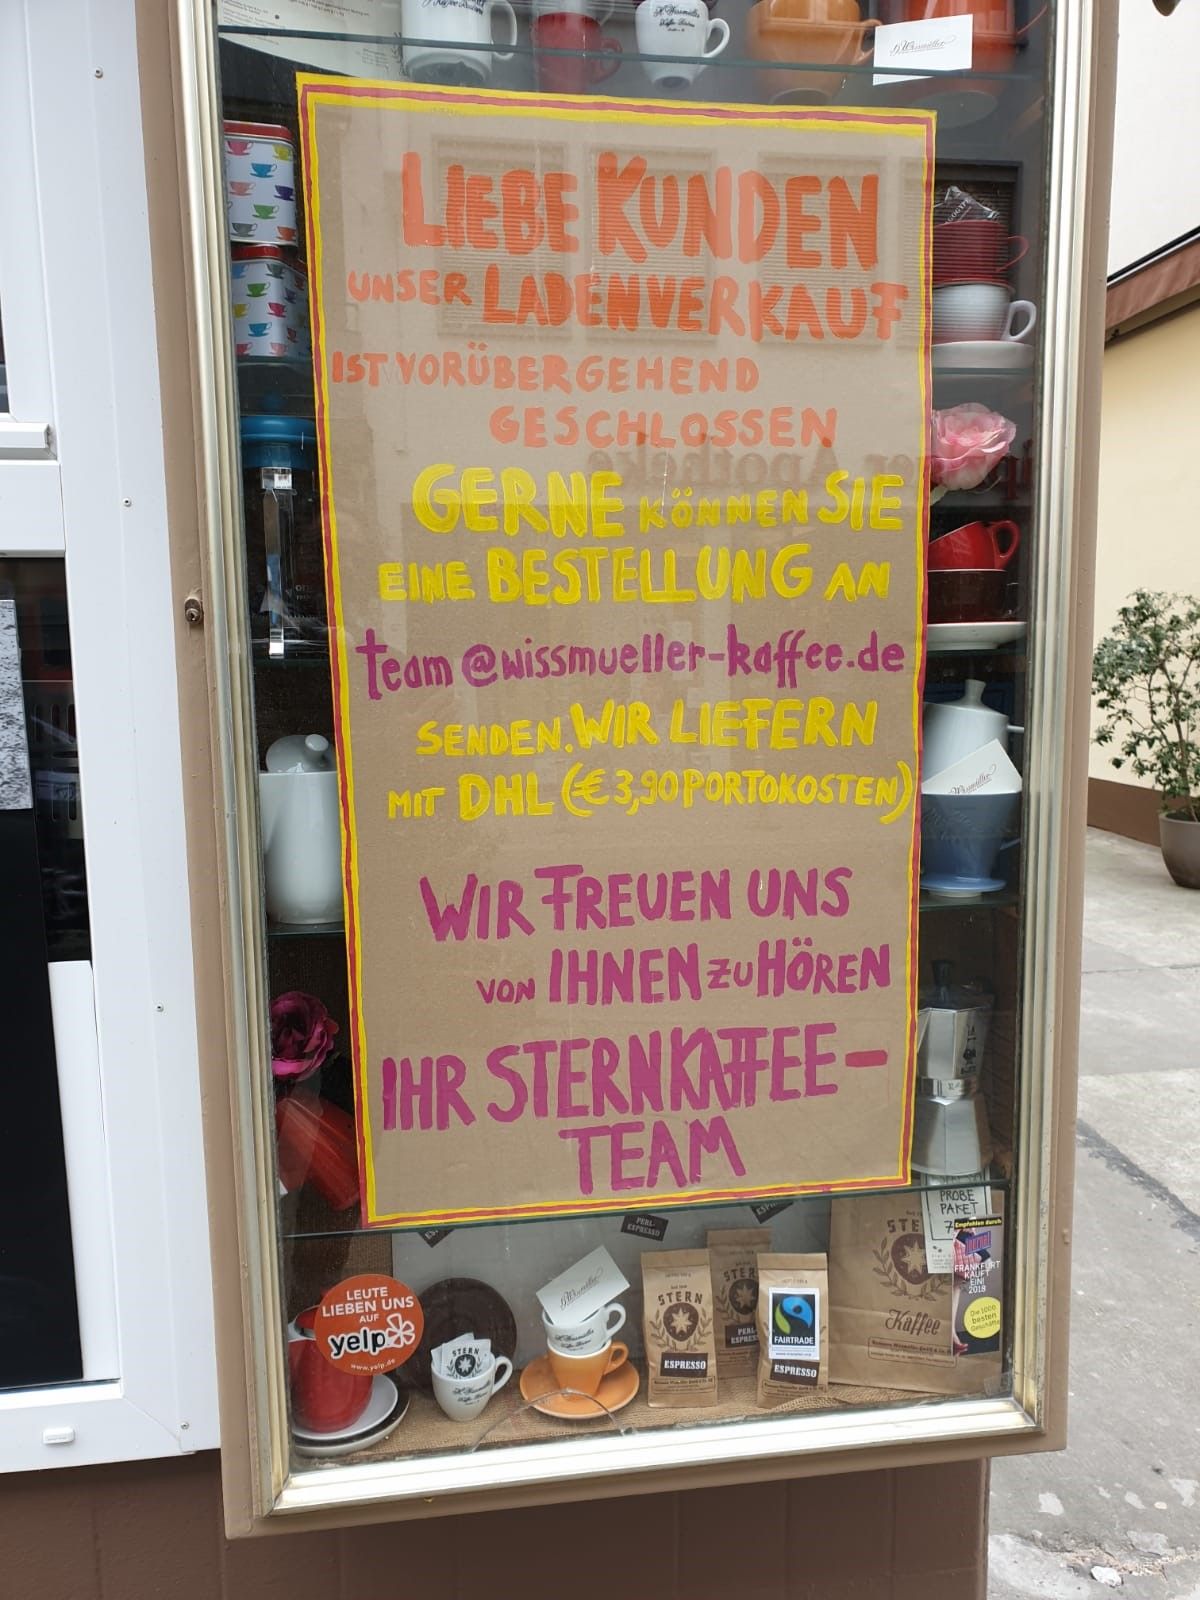 H. Wissmüller
LIEBE KUNDEN
UNSER LADENVERKAUF
IST VORÜBERGEHEND
GESCHLOSSEN
GERNE KÖNNEN SIE
EINE BESTELLUNG AN
team@wissmueller-kaffee.de
SENDEN. WIR LIEFERN
MIT DHL (€ 3,90 PORTOKOSTEN)
WIR FREUEN UNS
VON IHNEN ZU HÖREN
IHR STERNKAFFEE-
TEAM
Wissmüller
er Apotheke
PROBE
PAKET
PERL-
ESPRESSO
Empfohlen durch
Journal
FRANKFURT
KAUFT
EIN!
2018
Die 1000
besten
Geschäfte
LEUTE
LIEBEN UNS
AUF
yelp
www.yelp.de
STERN
H. Wissmüller
STERN
ESPRESSO
STERN
PERL-
FAIRTRADE
ESPRESSO
STERN
Kaffee